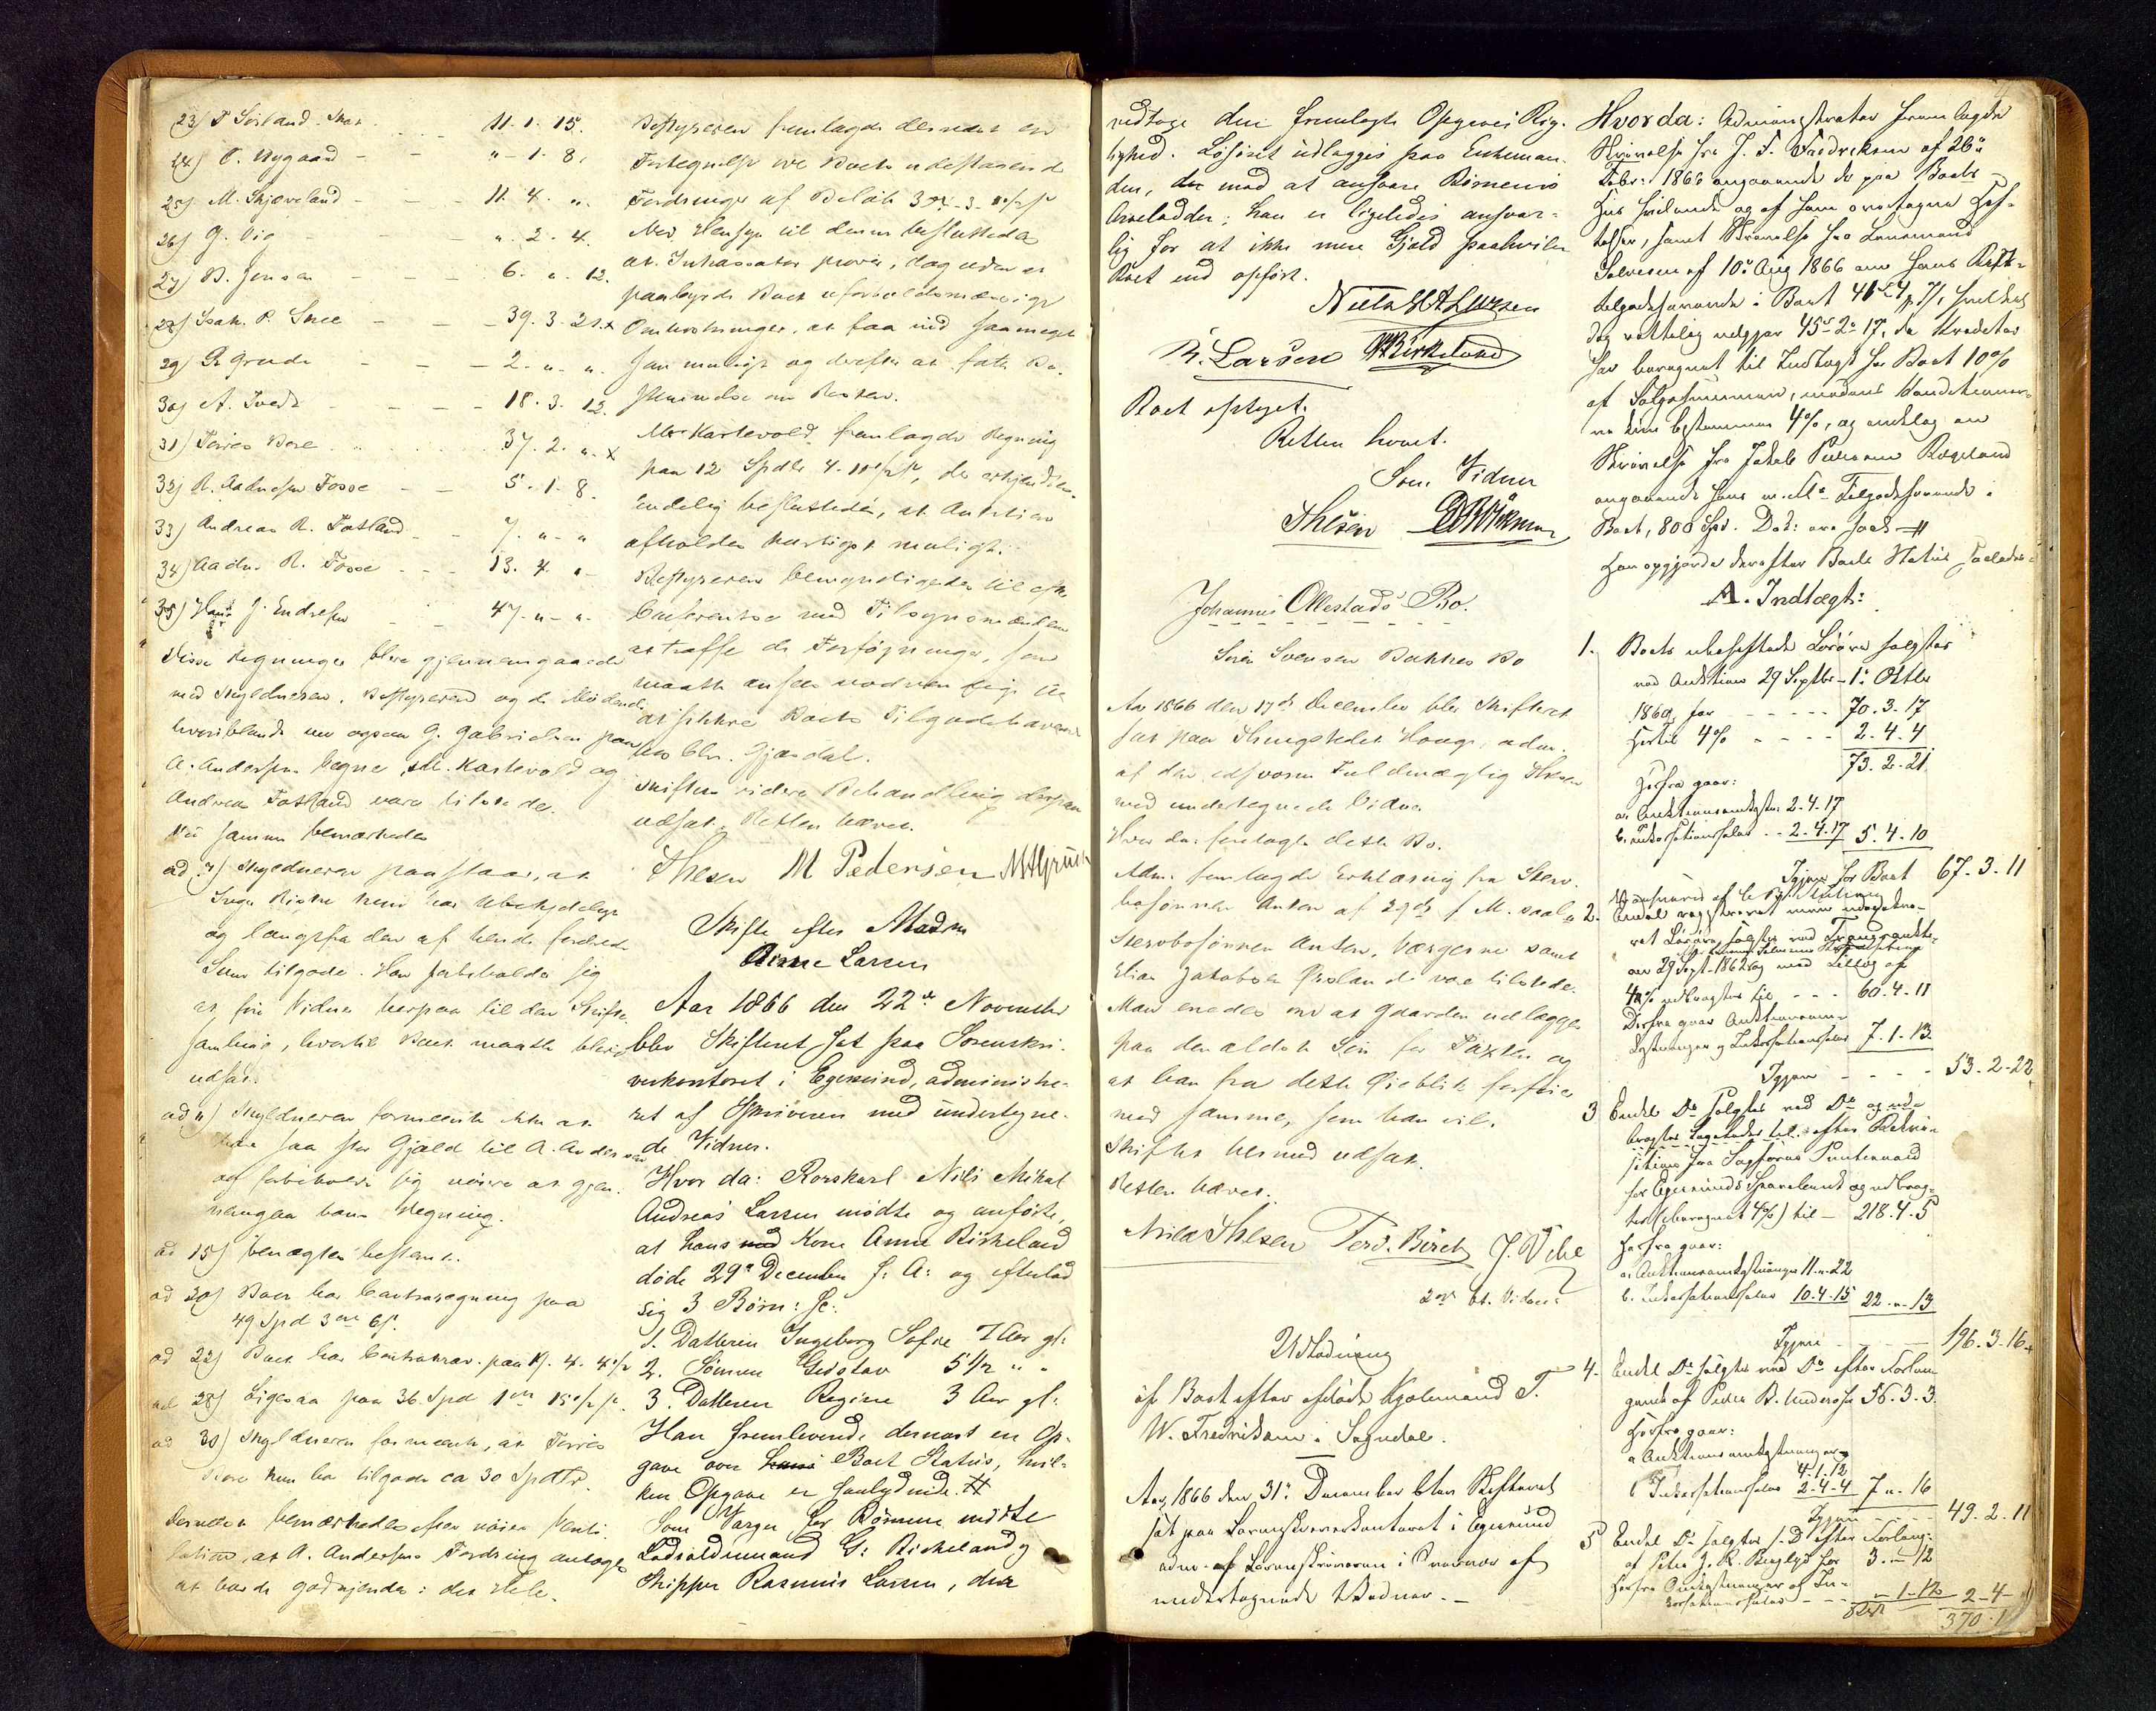 23) T Sørland. Skat - - 11. 1. 15.
24) O. Nygaard - - " - 1. 8.
25) M. Skjæveland - - - 11. 4. ".
26) G. Vig - - ". 2. 4.
27) B. Jensen - - - 6. ". 12.
28) Isak. P. Snee - - - 39. 3. 21. x
29) R Grude - - - 2. ". ".
30) A. Tvedt - - - - 18. 3. 12.
31) Tørres Bore . . . . 37. 2. ". x
32) R. Aadnesen Fosse - - 5. 1. 8.
33) Andreas R. Fotland - - 7. " - "
34) Aadne R. Fosse - - - 13. 4. " -
35) Hans J. Endresen - - 47. " - ".
Disse Regninger bleve gjennemgaaede
med Skyldneren, Bestyreren og de Mødende
hvoriblandt nu ogsaa G. Gabrielsen paa
A. Andersens Vegne, M. Kartevold og
Andreas Fotland vare tilstede.
Ved samme bemærkedes
ad 7) Skyldneren paastaar, at
og langtfra den af hende fordrede
Sum tilgode. Han forbeholder sig
at føre Vidner herpaa til den Skifte
samling, hvortil Boet maatte blive
udsat.
ad 11) Skyldneren formeente ikke at
have saa stor Gjæld til A. Andersen
og forbeholdt sig nøiere at gjen-
nemgaa hans Regning.
ad 15) benægtes bestemt.
ad 20) Boet har Contraregning paa
49 Spd 3 ort 6 s.
ad 22) Boet har Contrakrav paa 19. 4. 4 s
ad 28) Ligesaa paa 36 Spd 1 ort 15 s.
ad 30) Skyldneren formeente, at Tørres
Bore kun har tilgode ca 30 Spdlr.
Desuden bemærkedes efter nøiere Venti-
lation, at A. Andersens Fordring antages
at burde godkjendes i det Hele.
Bestyreren fremlagde dernæst en
Fortegnelse over Boets udestaaende
Fordringer af Beløb
Med Hensyn til denne besluttedes
at Inkassator prøver, dog uden at
paabyrde Boet uforholdsmæssige
Omkostninger, at faa ind saameget
som muligt og derefter at fatte Be-
stemmelse om Resten.
M. Kartevold fremlagde Regning
paa 12 Spdlr 4. 10
Endelig besluttedes, at Auktion
afholdes hurtigst muligt.
Bestyreren bemyndigedes til efter
Conference med Tilsynsmændene
at træffe de Forføininger, som
maatte ansees nødvendige til
at sikkre Boets Tilgodehavende
hos Chr. Gjædal.
Skiftets videre Behandling derpaa
udsat. Retten hævet.
Thesen M Pedersen
Skifte efter Madm
Anne Larsen
Aar 1866 den 22de November
blev Skifteret sat paa Sorenskri-
verkontoret i Egersund, administre-
ret af Skriveren med undertegne-
de Vidner.
Hvor da: Rorskarl Nils Mikal
Andreas Larsen mødte og anførte,
at hans med Kone Anne Birkeland
døde 29de December f. A: og efterlod
sig 3 Børn: sc:
1. Datteren Ingeborg Sofie 7 Aar gl:
2. Sønnen Gustav 5 1/2 " "
3. Datteren Regine 3 Aar gl:
Han fremleverede dernæst en Op-
gave over hans Boets Status, hvil-
ken Opgave er saalydende. #
Som Værger for Børnene mødte
Lodsoldermand G: Birkeland og
Skipper Rasmus Larsen, der
vedtoge den fremlagte Opgaves Rig-
tighed. Løsøret udlægges paa Enkeman-
den, der mod at ansvare Børnenes
Arvelodder; han er ligeledes ansvar-
lig for at ikke mere Gjæld paahviler
Boet end opført.
Niels M A Larsen
R. Larsen GBirkeland
Boet sluttet.
Retten hævet.
Som Vidner
Thesen
Johannes Ollestads Bo.
Søren Svensen Bakkes Bo
Aar 1866 den 17de December blev Skifteret
sat paa Thingstedet Hauge, adm.
af den edsvorne Fuldmægtig Thesen
med undertegnede Vidner
Hvor da foretoges dette Bo.
Adm. fremlagde Erklæring fra Sterv-
bosønnen Anton af 29de f. M. saalyd
Stervbosønnen Anton, Værgerne samt
Elias Jakobsen Ørsland vare tilstede.
Man enedes om at Gaarden udlægges
paa den ældste Søn for Taxten og
at han fra dette Øieblik forføier
med samme, som han vil.
Skiftet hermed udsat.
Retten hævet.
Niels Thesen Ferd. Birch
Udlodning
i Boet efter afdøde Kjøbmand T.
W. Fredriksen i Sogndal.
Aar 1866 den 31te December blev Skifteret
sat paa Sorenskriverkontoret i Egersund
adm. af Sorenskriveren i Nærvær af
undertegnede Vidner. -
Hvorda: Administrator fremlagde
Skrivelse fra J. F. Fredriksen af 26de
Febr: 1866 angaaende de paa Boets
Huus hvilende og af ham overtagne Hef-
telser, samt Skrivelse fra Lensmand
Salvesen af 10de Aug 1866 om hans Rest-
tilgodehavende i Boet
dog rettelig udgjør 45 s 2 o 17, da Kreditor
har beregnet til Indtægt for Boet 10%
af Salgssummen, medens Konditioner-
ne kun bestemmer 4%, og endelig en
Skrivelse fra Jakob Pedersen Rægeland
angaaende hans m. Fl. Tilgodehavende i
Boet, 800 Spd. De: ere saal #
Han opgjorde derefter Boets Status saaledes:
A. Indtægt:
1. Boets ubeheftede Løsøre solgtes
ved Auktion 29 Septbr - 1te Oktbr
1860, for - - - - - 70. 3. 17
Hertil 4% - - - - 2. 4. 4
73. 2. 21
Herfra gaar:
a. Auktionsomkostn 2. 4. 17
b. Inkassationssalær - - 2. 4. 17 5. 4. 10
Igjen for Boet 67. 3. 11
2.
ret Løsøre, solgtes ved Tvangsauktion
den 29 Sept. 1862 og med Tillæg af
4% udbragtes til - - - 60. 4. 11
Derfra gaar Auktionsom-
kostninger og Inkassationssalær 7. 1. 13
Igjen - - - - 53. 2. 22
3 Endel Do solgtes ved Do og ud-
bragtes ligeledes til efter Rekvi-
sition fra Sagfører Puntervold
for Egersunds Sparebank og udbrag-
tes (beregnet 4%) til - 218. 4. 5
Herfra gaar:
a. Auktionsomkostninger 11. ". 22
b. Inkassationssalær 10. 4. 15 22. " - 13
Igjen - - - 196. 3. 16
4. Endel Do solgtes ved Do efter Forlan-
gende af Peder B. Andersen 56. 3. 3.
Herfra gaar:
a Auktionsomkostninger
4. 1. 12
b Inkassationssalær 2. 4. 4 7 ". 16
Igjen - - - 49. 2. 11
5 Endel Do solgtes s. D. efter Forlang:
for 3. - 12
Herfra Omkostninger og In-
kassationssalær - - - " - 1 - 12 2 - 4 -
370. 1